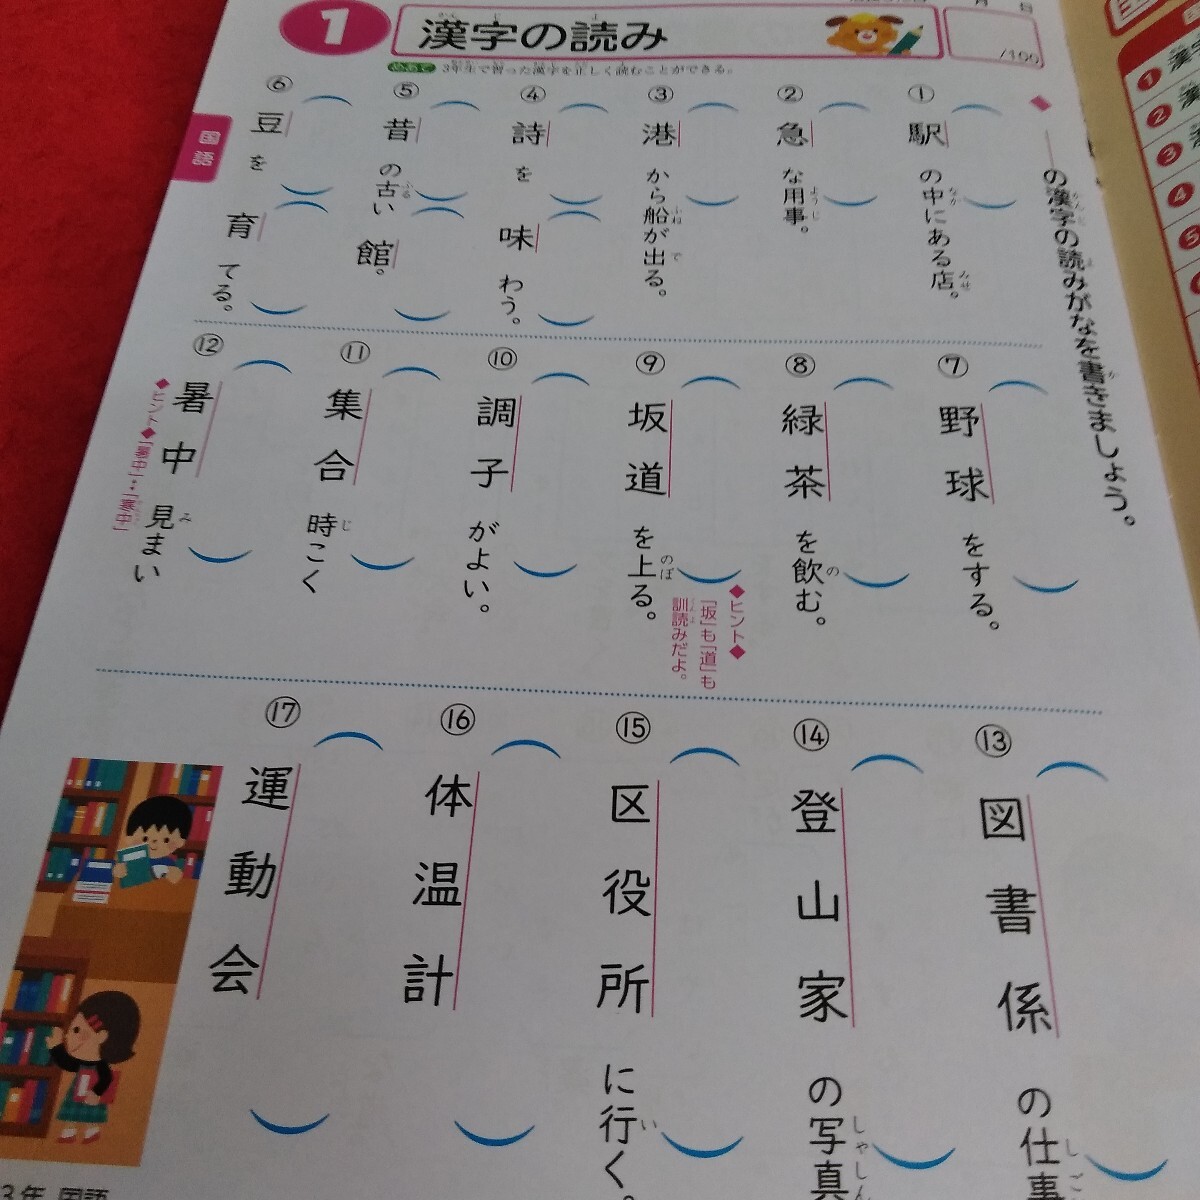 1
漢字の読み
月
/100
めあて 3年生で習った漢字を正しく読むことができる。
国語
――の漢字の読みがなを書きましょう。
① 駅の中にある店。
② 急な用事。
③ 港から船が出る。
④ 詩を味わう。
⑤ 昔の古い館。
⑥ 豆を育てる。
⑦ 野球をする。
⑧ 緑茶を飲む。
⑨ 坂道を上る。
◆ヒント◆
「坂」も「道」も
訓読みだよ。
⑩ 調子がよい。
⑪ 集合時こく
⑫ 暑中見まい
◆ヒント◆「暑中」↔「寒中」
⑬ 図書係の仕事
⑭ 登山家の写真
⑮ 区役所に行く。
⑯ 体温計
⑰ 運動会
3年 国語